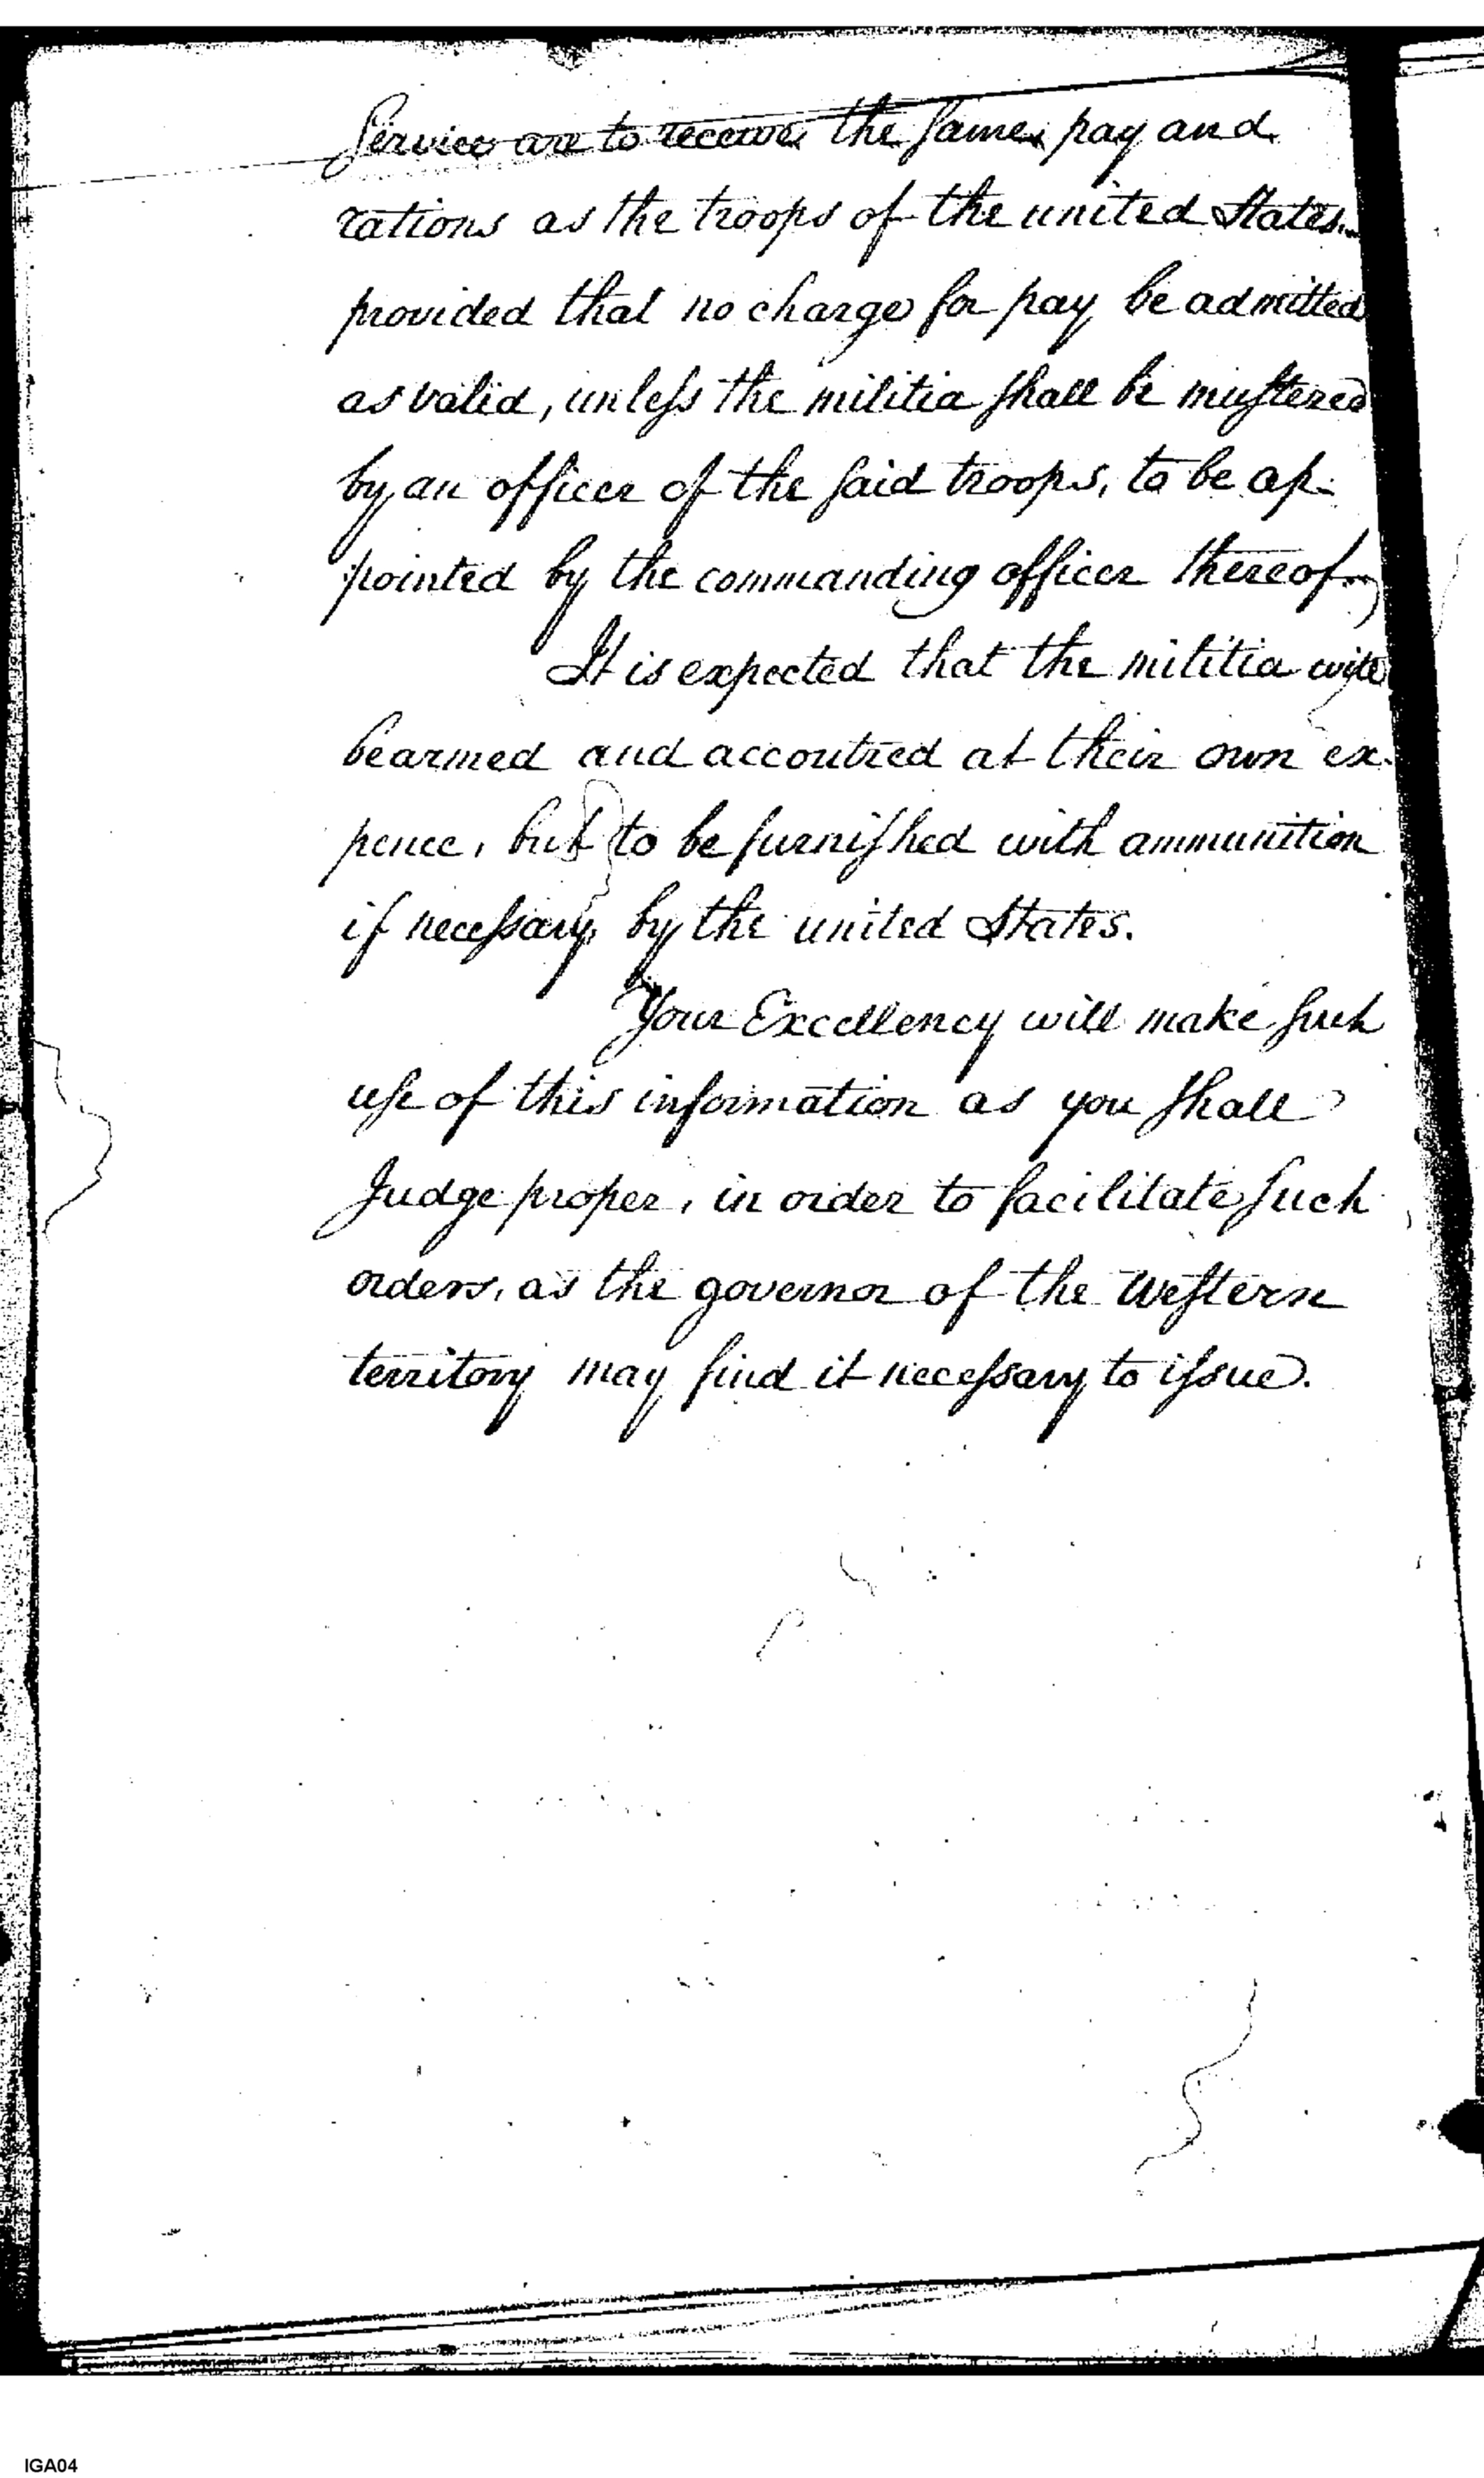 Service are to receive the same pay and
rations as the troops of the united States.
provided that no charge for pay be admitted
as valid, unless the militia shall be mustered
by an officer of the said troops, to be ap-
pointed by the commanding officer thereof
It is expected that the militia will
be armed and accoutred at their own ex-
pence, but to be furnished with ammunition
if necessary by the united States.
Your Excellency will make such
use of this information as you shall
Judge proper, in order to facilitate such
orders, as the governor of the Western
territory may find it necessary to issue.
IGA04